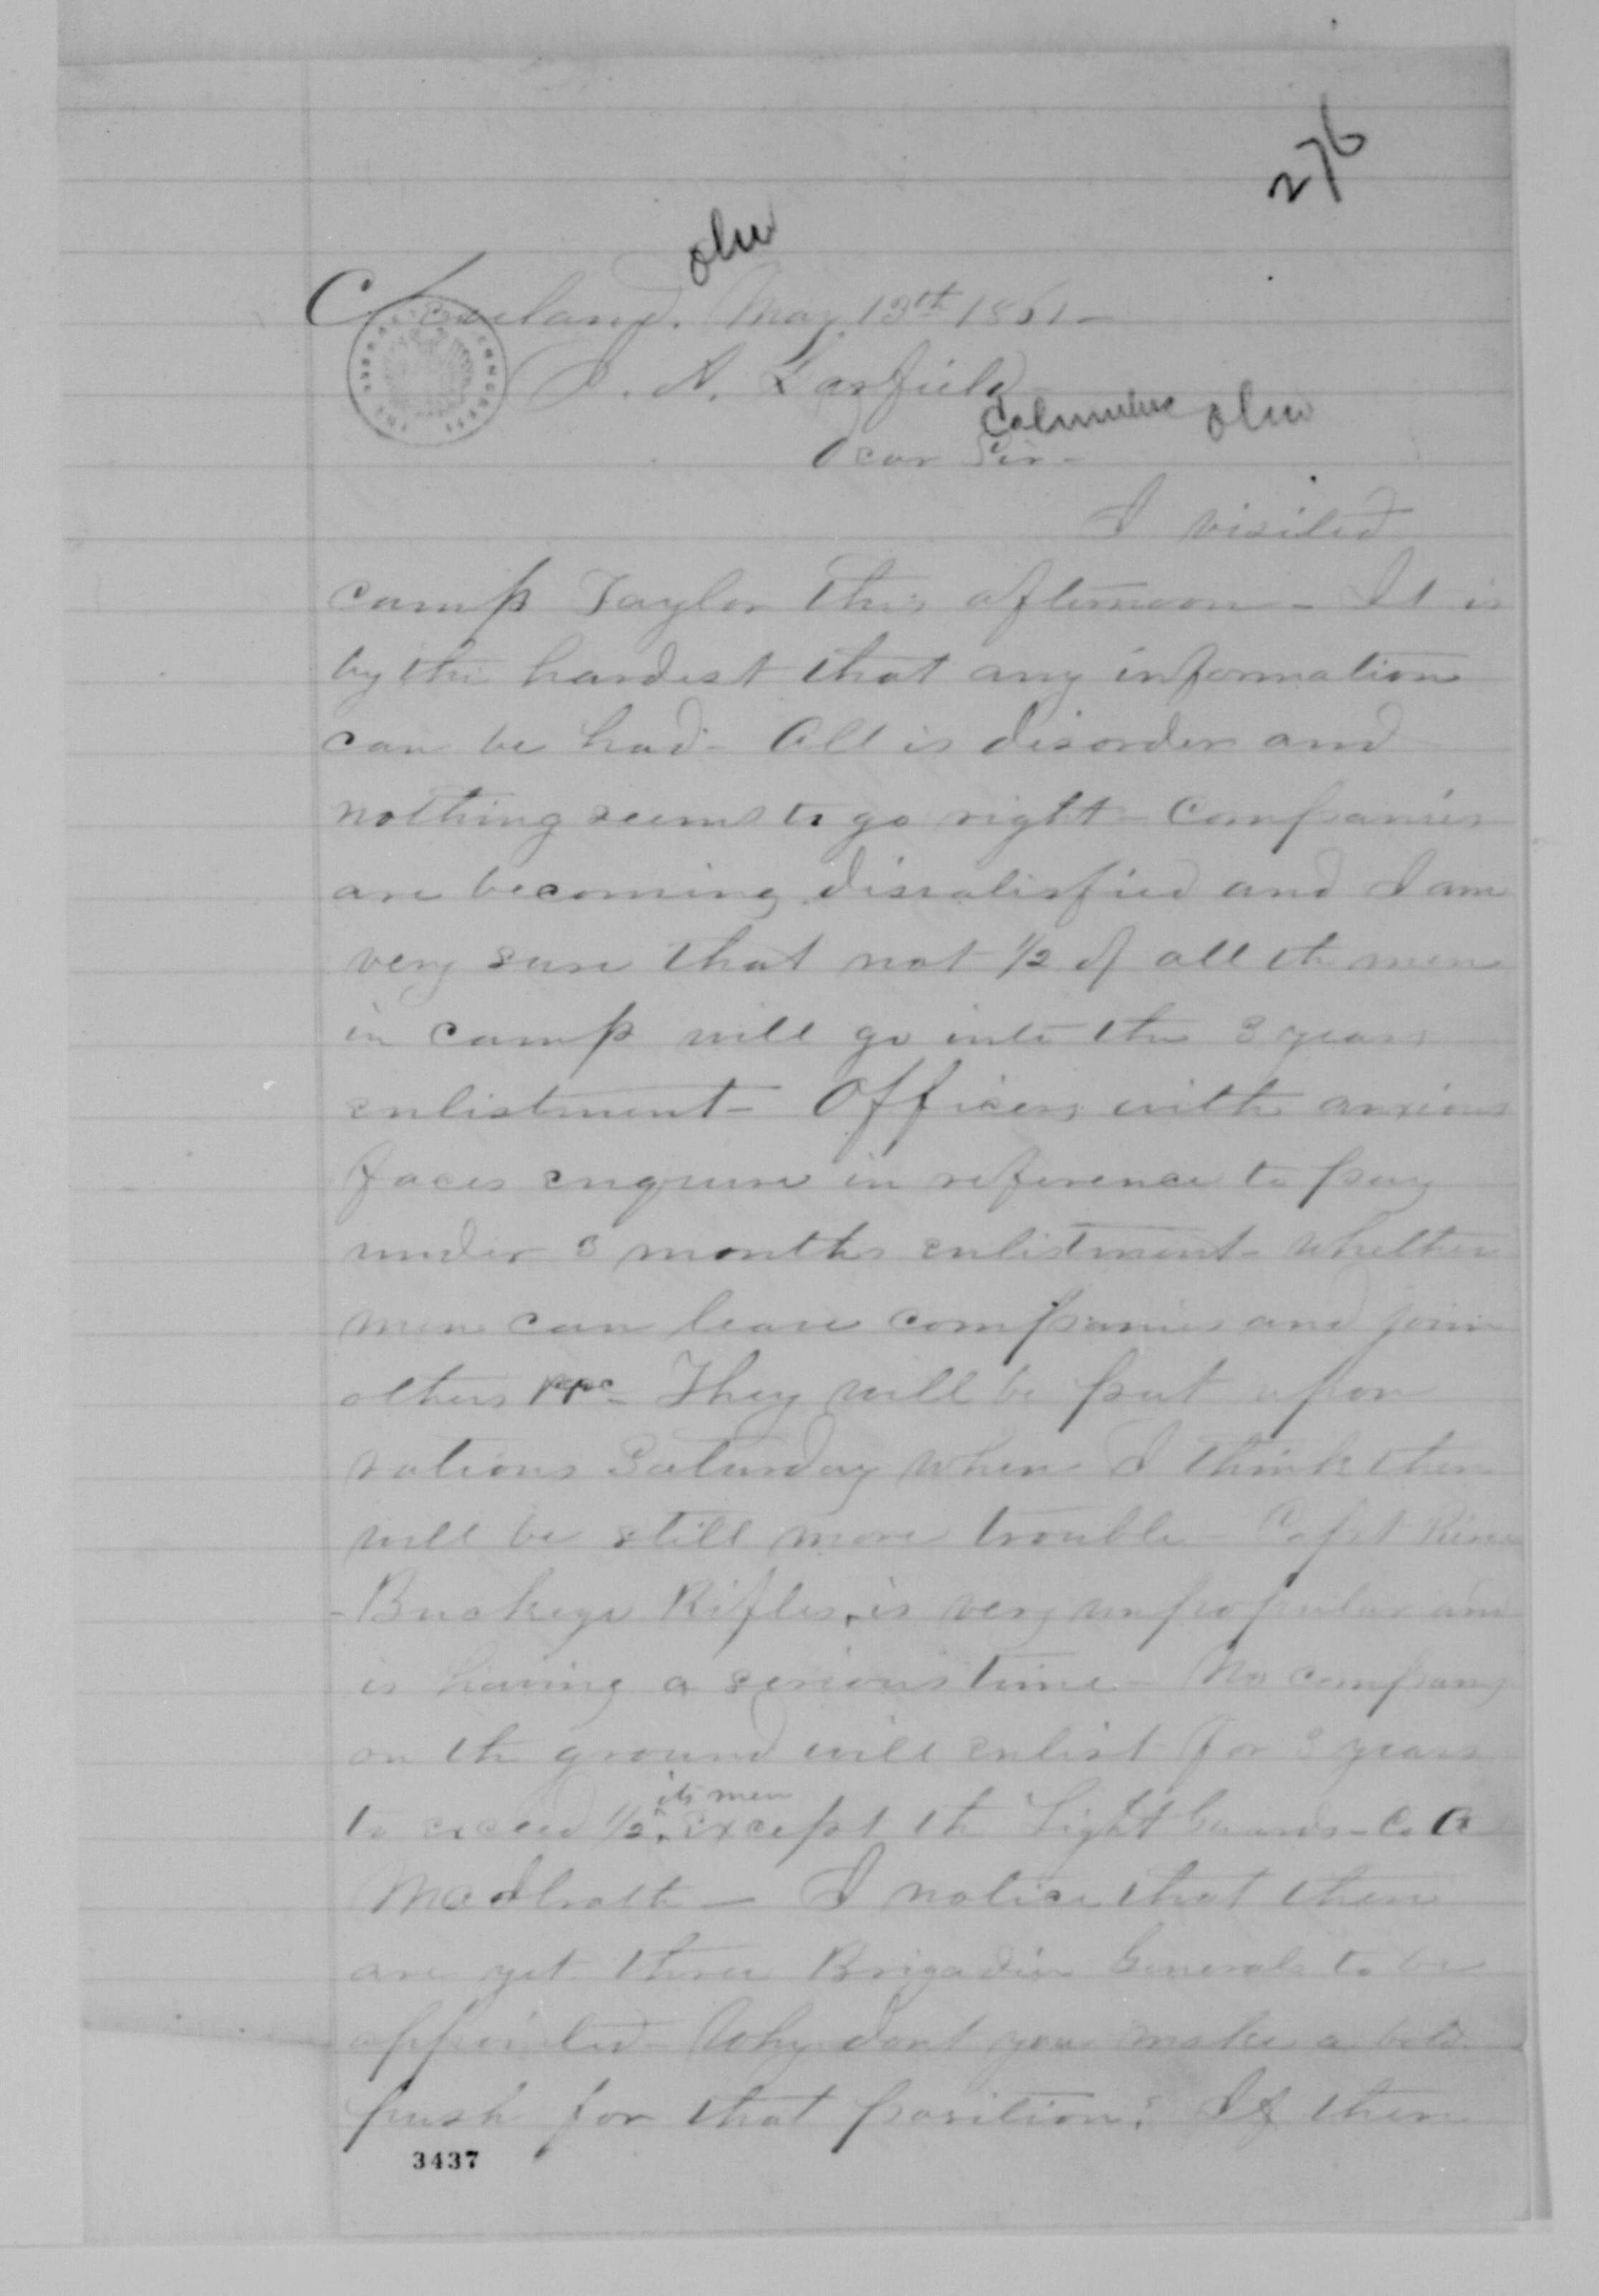 276
Ohio
Cleveland. May 13th 1861-
J. A. Garfield
Columbus Ohio
Dear Sir-
I visited
camp Taylor this afternoon - It is
by the hardest that any information
can be had - All is disorder and
nothing seems to go right - Companies
are becoming dissatisfied and I am
very sure that not 1/2 of all the men
in camp will go into the 3 years
enlistment - Officers with anxious
faces enquire in reference to pay
under 3 months enlistment - whether
men can leave companies and join
others - They will be put upon
rations Saturday when I think there
will be still more trouble - Capt
- Buckeye Rifles, is very unpopular and
is having a serious time - No company
on the ground will enlist for 3 years
to exceed 1/2 its men. Except the Light Guards - Co A
- I notice that there
are yet three Brigadier Generals to be
appointed - Why dont you make a bold
push for that position? If there
3437